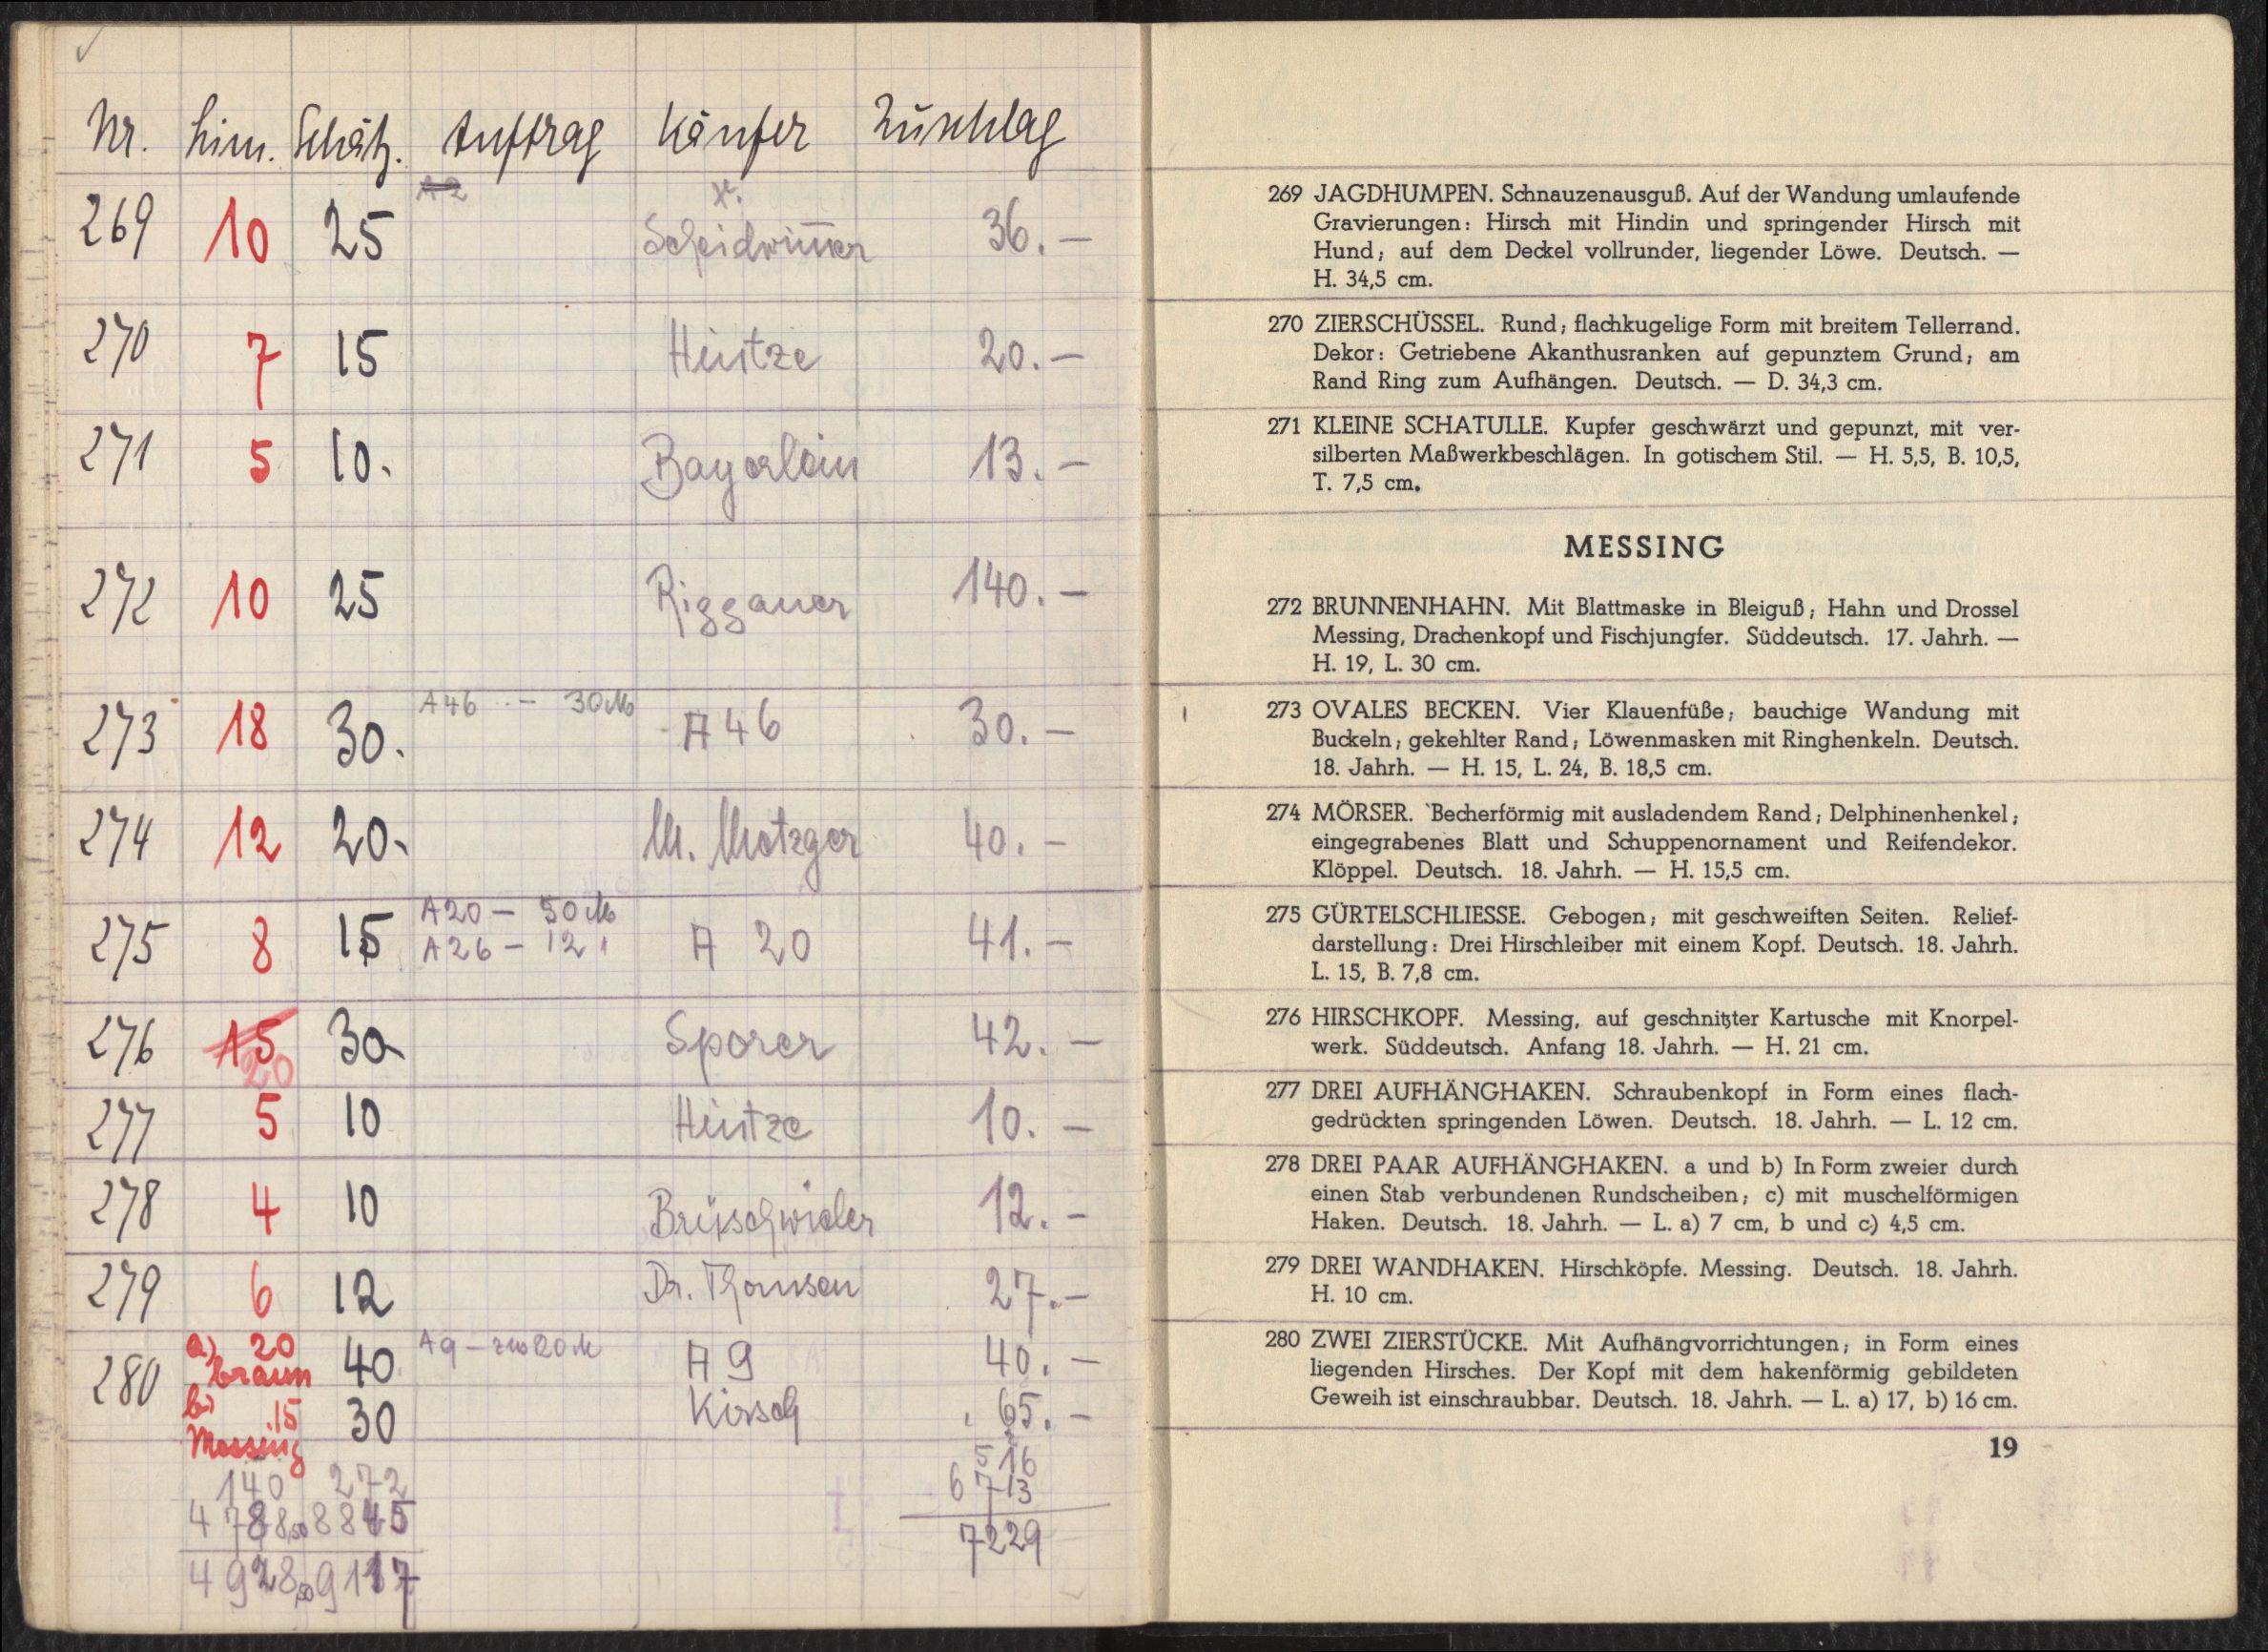 Nr. Lim. Schätz. Auftrag Käufer Zuschlag
269 10 25 Scheidwimmer 36.—
270 7 15 Heintze 20.—
271 5 10. Bayerlein 13.—
272 10 25 Riggauer 140.—
273 18 30. A46 — 30 M A 46 30.—
274 12 20. M. Metzger 40.—
275 8 15 A20 — 50 M A 20 41.—
A26 — 12 "
276 15 20 30 Sporer 42.—
277 5 10 Heintze 10.—
278 4 10 Brüschwiler 12.—
279 6 12 Dr. Thomsen 27.—
280 a) 20 braun 40 A 9 40.—
b) 15 Messing 30 Kirsch 65.—
140 272 516
4788,50 8845 6713
4928,50 9117 7229
269 JAGDHUMPEN. Schnauzenausguß. Auf der Wandung umlaufende
Gravierungen: Hirsch mit Hindin und springender Hirsch mit
Hund; auf dem Deckel vollrunder, liegender Löwe. Deutsch. —
H. 34,5 cm.
270 ZIERSCHÜSSEL. Rund; flachkugelige Form mit breitem Tellerrand.
Dekor: Getriebene Akanthusranken auf gepunztem Grund; am
Rand Ring zum Aufhängen. Deutsch. — D. 34,3 cm.
271 KLEINE SCHATULLE. Kupfer geschwärzt und gepunzt, mit ver-
silberten Maßwerkbeschlägen. In gotischem Stil. — H. 5,5, B. 10,5,
T. 7,5 cm.
MESSING
272 BRUNNENHAHN. Mit Blattmaske in Bleiguß; Hahn und Drossel
Messing, Drachenkopf und Fischjungfer. Süddeutsch. 17. Jahrh. —
H. 19, L. 30 cm.
273 OVALES BECKEN. Vier Klauenfüße; bauchige Wandung mit
Buckeln; gekehlter Rand; Löwenmasken mit Ringhenkeln. Deutsch.
18. Jahrh. — H. 15, L. 24, B. 18,5 cm.
274 MÖRSER. Becherförmig mit ausladendem Rand; Delphinenhenkel;
eingegrabenes Blatt und Schuppenornament und Reifendekor.
Klöppel. Deutsch. 18. Jahrh. — H. 15,5 cm.
275 GÜRTELSCHLIESSE. Gebogen; mit geschweiften Seiten. Relief-
darstellung: Drei Hirschleiber mit einem Kopf. Deutsch. 18. Jahrh.
L. 15, B. 7,8 cm.
276 HIRSCHKOPF. Messing, auf geschnitzter Kartusche mit Knorpel-
werk. Süddeutsch. Anfang 18. Jahrh. — H. 21 cm.
277 DREI AUFHÄNGHAKEN. Schraubenkopf in Form eines flach-
gedrückten springenden Löwen. Deutsch. 18. Jahrh. — L. 12 cm.
278 DREI PAAR AUFHÄNGHAKEN. a und b) In Form zweier durch
einen Stab verbundenen Rundscheiben; c) mit muschelförmigen
Haken. Deutsch. 18. Jahrh. — L. a) 7 cm, b und c) 4,5 cm.
279 DREI WANDHAKEN. Hirschköpfe. Messing. Deutsch. 18. Jahrh.
H. 10 cm.
280 ZWEI ZIERSTÜCKE. Mit Aufhängvorrichtungen; in Form eines
liegenden Hirsches. Der Kopf mit dem hakenförmig gebildeten
Geweih ist einschraubbar. Deutsch. 18. Jahrh. — L. a) 17, b) 16 cm.
19